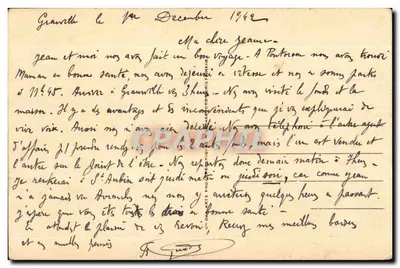 Granville le 1er Decembre 1942
Ma chère Jeanne
Jean et moi nous avons fait un bon voyage. A Pontorson nous avons trouvé
Maman en bonne santé, nous avons déjeuné en vitesse et nous sommes partis
à 11h45. Arrivée à Granville vers 3 heures. Nous avons visité le fonds et la
maison. Il y a des avantages et des inconvénients que je vous expliquerai de
vive voix. Aussi nous n'avons rien décidé. Nous avons téléphoné à l'autre agent
d'affaires pour prendre rendez-vous pour 2 autres mais l'un est vendu et
l'autre sur le point de l'être. Nous repartons donc demain matin à
je rentrerai à St Aubin soit jeudi matin ou jeudi soir, car comme Jean
n'a jamais vu Avranches nous nous y arrêterons quelques heures en passant.
J'espère que vous êtes tous en bonne santé -
En attendant le plaisir de vous revoir, Recevez mes meilleurs baisers
et mes meilleures pensées